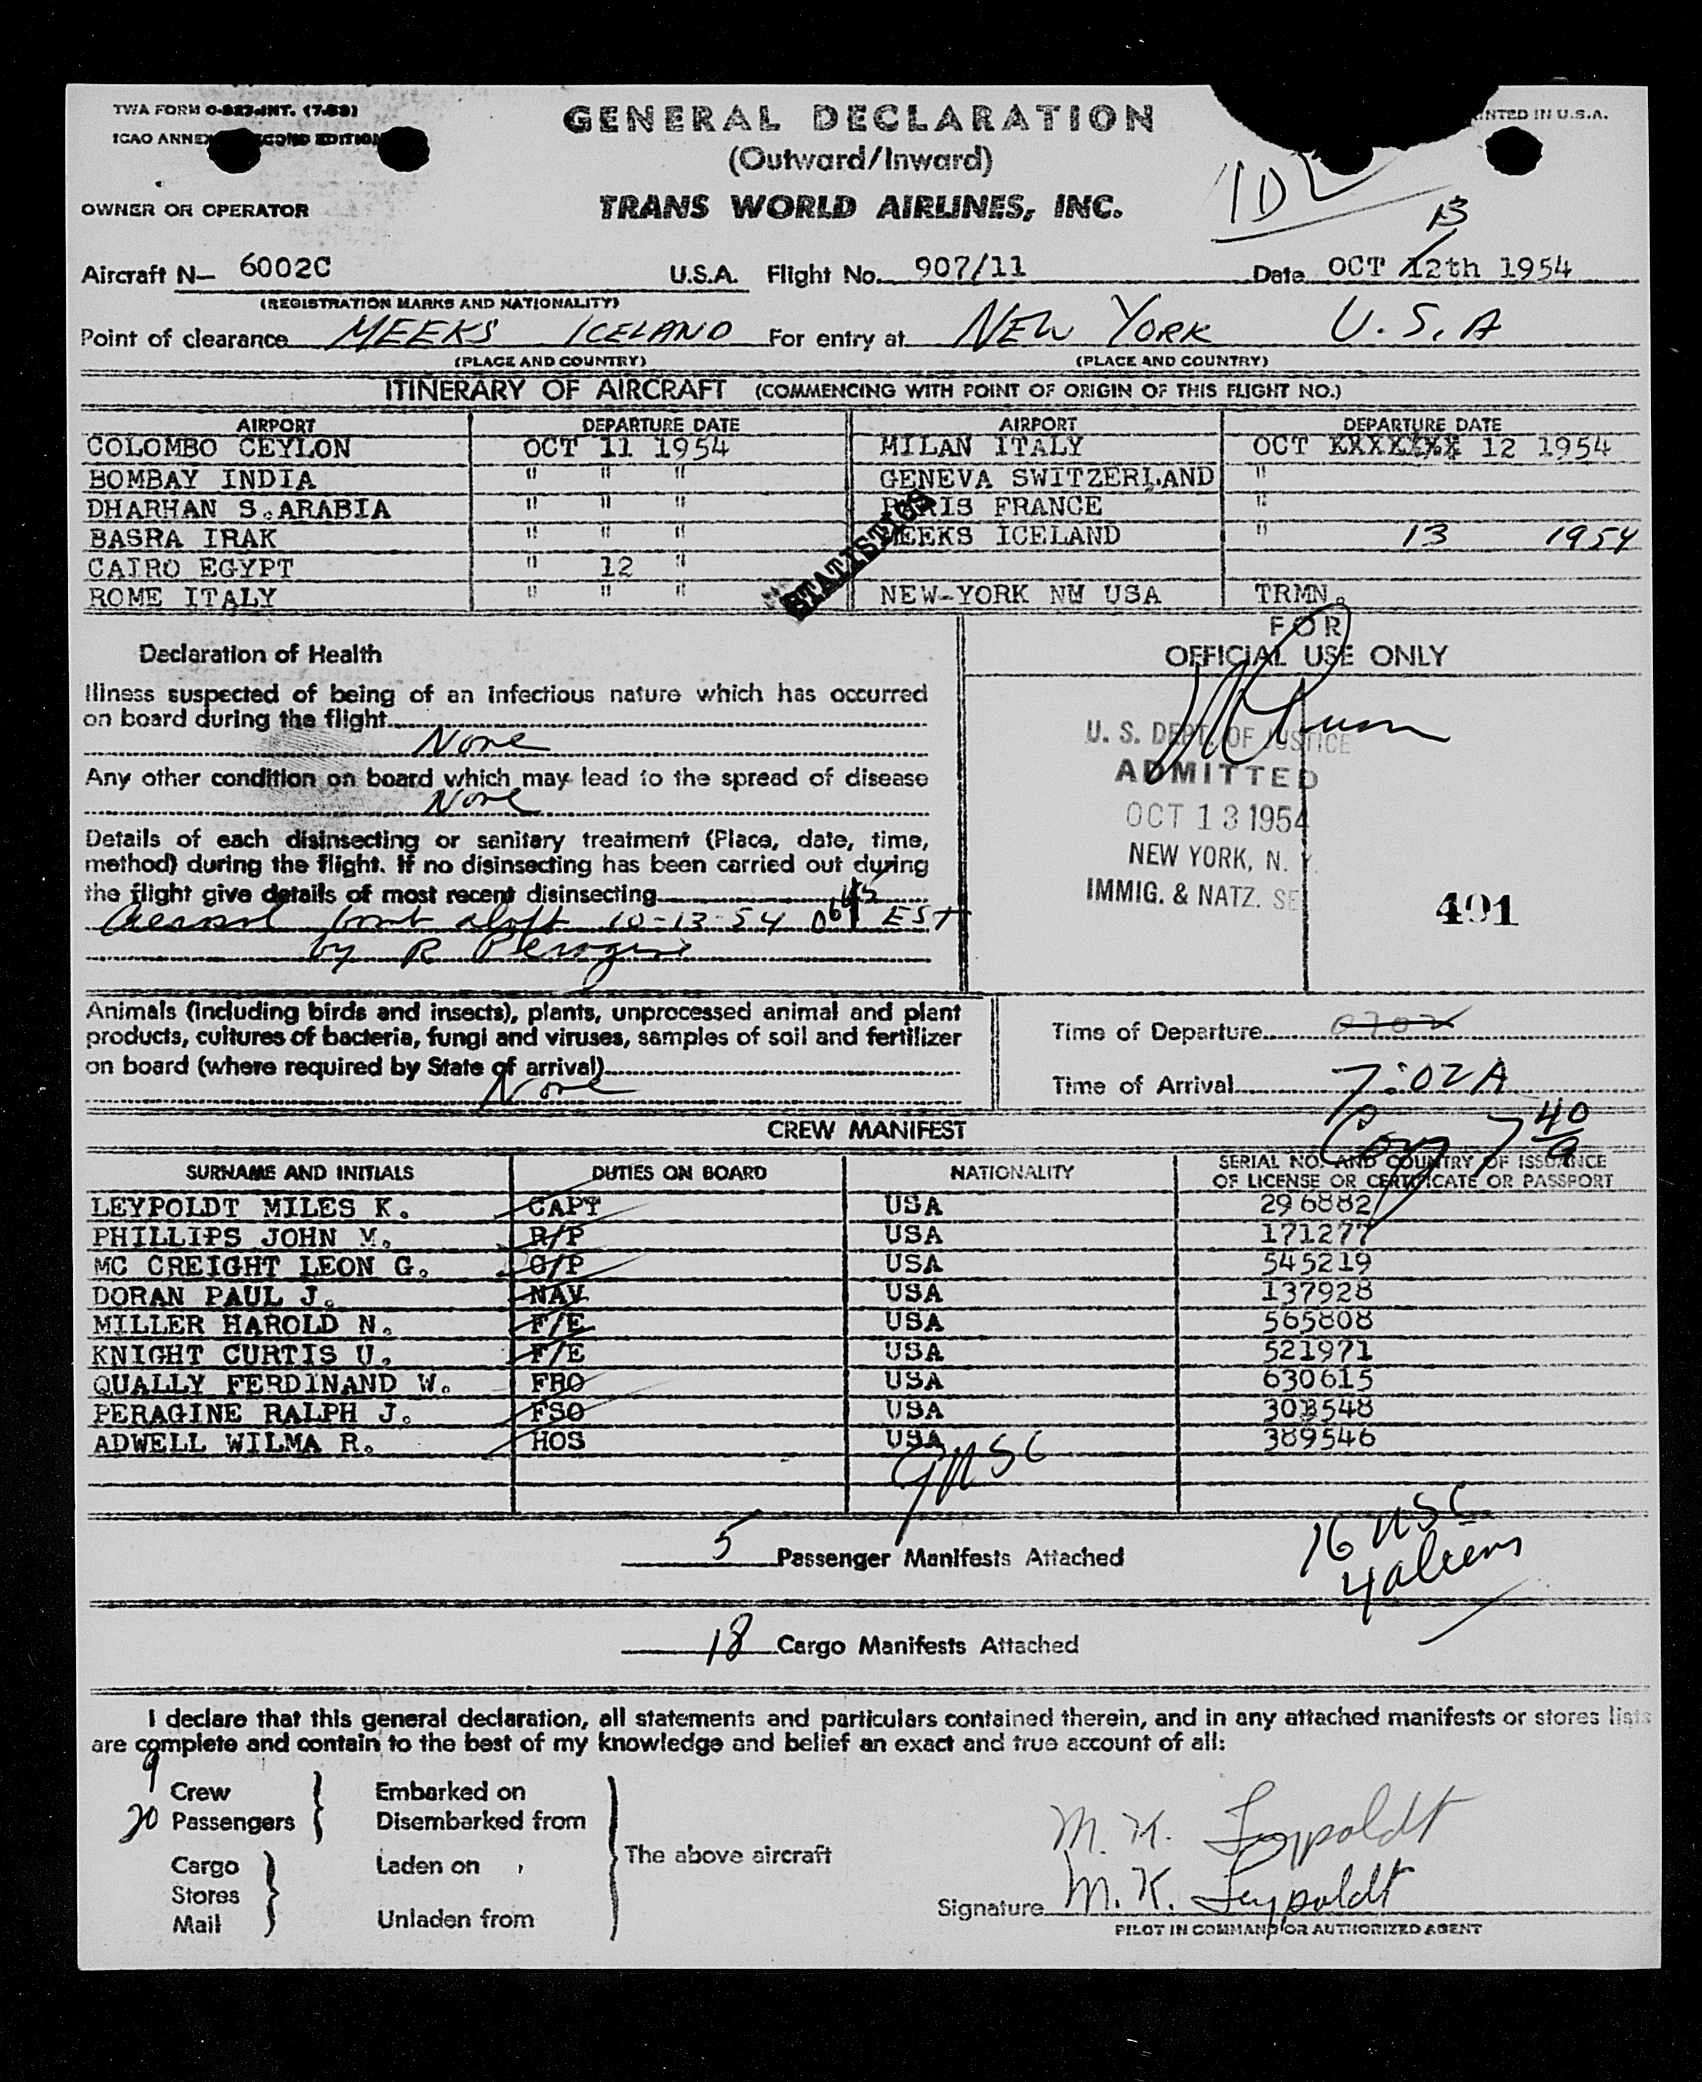 TWA FORM O-827-INT. (7-53)
ICAO ANNEX SECOND EDITION
PRINTED IN U.S.A.
GENERAL DECLARATION
(Outward/Inward)
OWNER OR OPERATOR TRANS WORLD AIRLINES, INC.
13
Aircraft N- 6002C U.S.A. Flight No. 907/11 Date OCT 12th 1954
(REGISTRATION MARKS AND NATIONALITY)
Point of clearance MEEKS ICELAND For entry at NEW YORK U.S.A
(PLACE AND COUNTRY) (PLACE AND COUNTRY)
ITINERARY OF AIRCRAFT (COMMENCING WITH POINT OF ORIGIN OF THIS FLIGHT NO.)
AIRPORT DEPARTURE DATE AIRPORT DEPARTURE DATE
COLOMBO CEYLON OCT 11 1954 MILAN ITALY OCT XXXXXXX 12 1954
BOMBAY INDIA " " " GENEVA SWITZERLAND "
DHARHAN S.ARABIA " " " PARIS FRANCE "
BASRA IRAK " " " MEEKS ICELAND " 13 1954
CAIRO EGYPT " 12 "
ROME ITALY " " " NEW-YORK NW USA TRMN.
STATISTICS
Declaration of Health
FOR
OFFICIAL USE ONLY
Illness suspected of being of an infectious nature which has occurred
on board during the flight
None
Any other condition on board which may lead to the spread of disease
None
Details of each disinsecting or sanitary treatment (Place, date, time,
method) during the flight. If no disinsecting has been carried out during
the flight give details of most recent disinsecting
Aerosol bomb aloft 10-13-54 0645 EST
by R Peragine
U. S. DEPT. OF JUSTICE
ADMITTED
OCT 13 1954
NEW YORK, N. Y.
IMMIG. & NATZ. SE
491
Animals (including birds and insects), plants, unprocessed animal and plant
products, cultures of bacteria, fungi and viruses, samples of soil and fertilizer
on board (where required by State of arrival)
None
Time of Departure 0702
Time of Arrival 7:02 A
7 40
CREW MANIFEST
SURNAME AND INITIALS DUTIES ON BOARD NATIONALITY SERIAL NO. AND COUNTRY OF ISSUANCE
OF LICENSE OR CERTIFICATE OR PASSPORT
LEYPOLDT MILES K. CAPT USA 296882
PHILLIPS JOHN M. R/P USA 171277
MC CREIGHT LEON G. C/P USA 545219
DORAN PAUL J. NAV USA 137928
MILLER HAROLD N. F/E USA 565808
KNIGHT CURTIS U. F/E USA 521971
QUALLY FERDINAND W. FRO USA 630615
PERAGINE RALPH J. FSO USA 303548
ADWELL WILMA R. HOS USA 389546
9 USC
5 Passenger Manifests Attached
16 USC
4 aliens
18 Cargo Manifests Attached
I declare that this general declaration, all statements and particulars contained therein, and in any attached manifests or stores lists
are complete and contain to the best of my knowledge and belief an exact and true account of all:
9 Crew Embarked on
20 Passengers Disembarked from
The above aircraft
Cargo Laden on
Stores
Mail Unladen from
M. K. Leypoldt
Signature M. K. Leypoldt
PILOT IN COMMAND OR AUTHORIZED AGENT